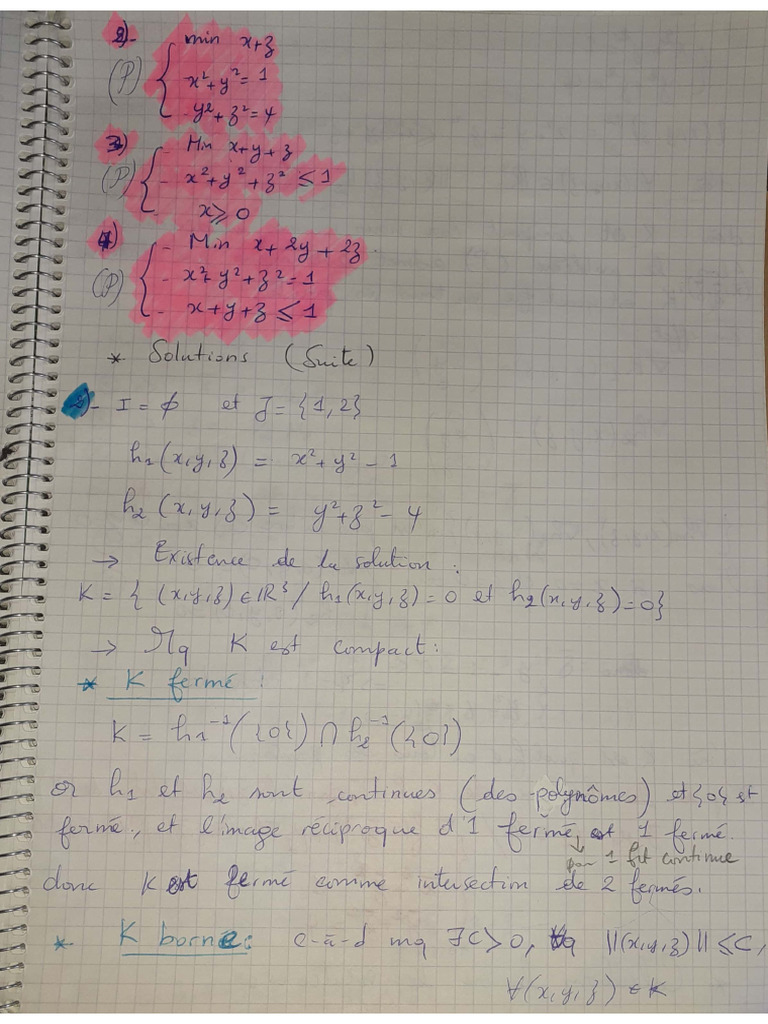 2)- min x+z
(P) { x²+y²=1
- y²+z²=4
3) - Min x+y+z
(P) { - x²+y²+z² ≤ 1
- x ≥ 0
4) - Min x+2y+2z
(P) { - x²+y²+z²=1
- x+y+z ≤ 1
* Solutions (Suite)
- I = ∅ et J = {1,2}
h₁(x,y,z) = x²+y²-1
h₂(x,y,z) = y²+z²-4
→ Existence de la solution :
K = { (x,y,z) ∈ IR³ / h₁(x,y,z)=0 et h₂(x,y,z)=0}
→ Mq K est compact :
* K fermé :
K = h₁⁻¹({0}) ∩ h₂⁻¹({0})
or h₁ et h₂ sont continues (des polynômes) et {0} est
fermé, et l'image réciproque d'1 fermé est 1 fermé.
↓ par 1 fct continue
donc K est fermé comme intersection de 2 fermés.
* K borné : c-à-d mq ∃C>0, tq ||(x,y,z)|| ≤ C,
∀(x,y,z) ∈ K